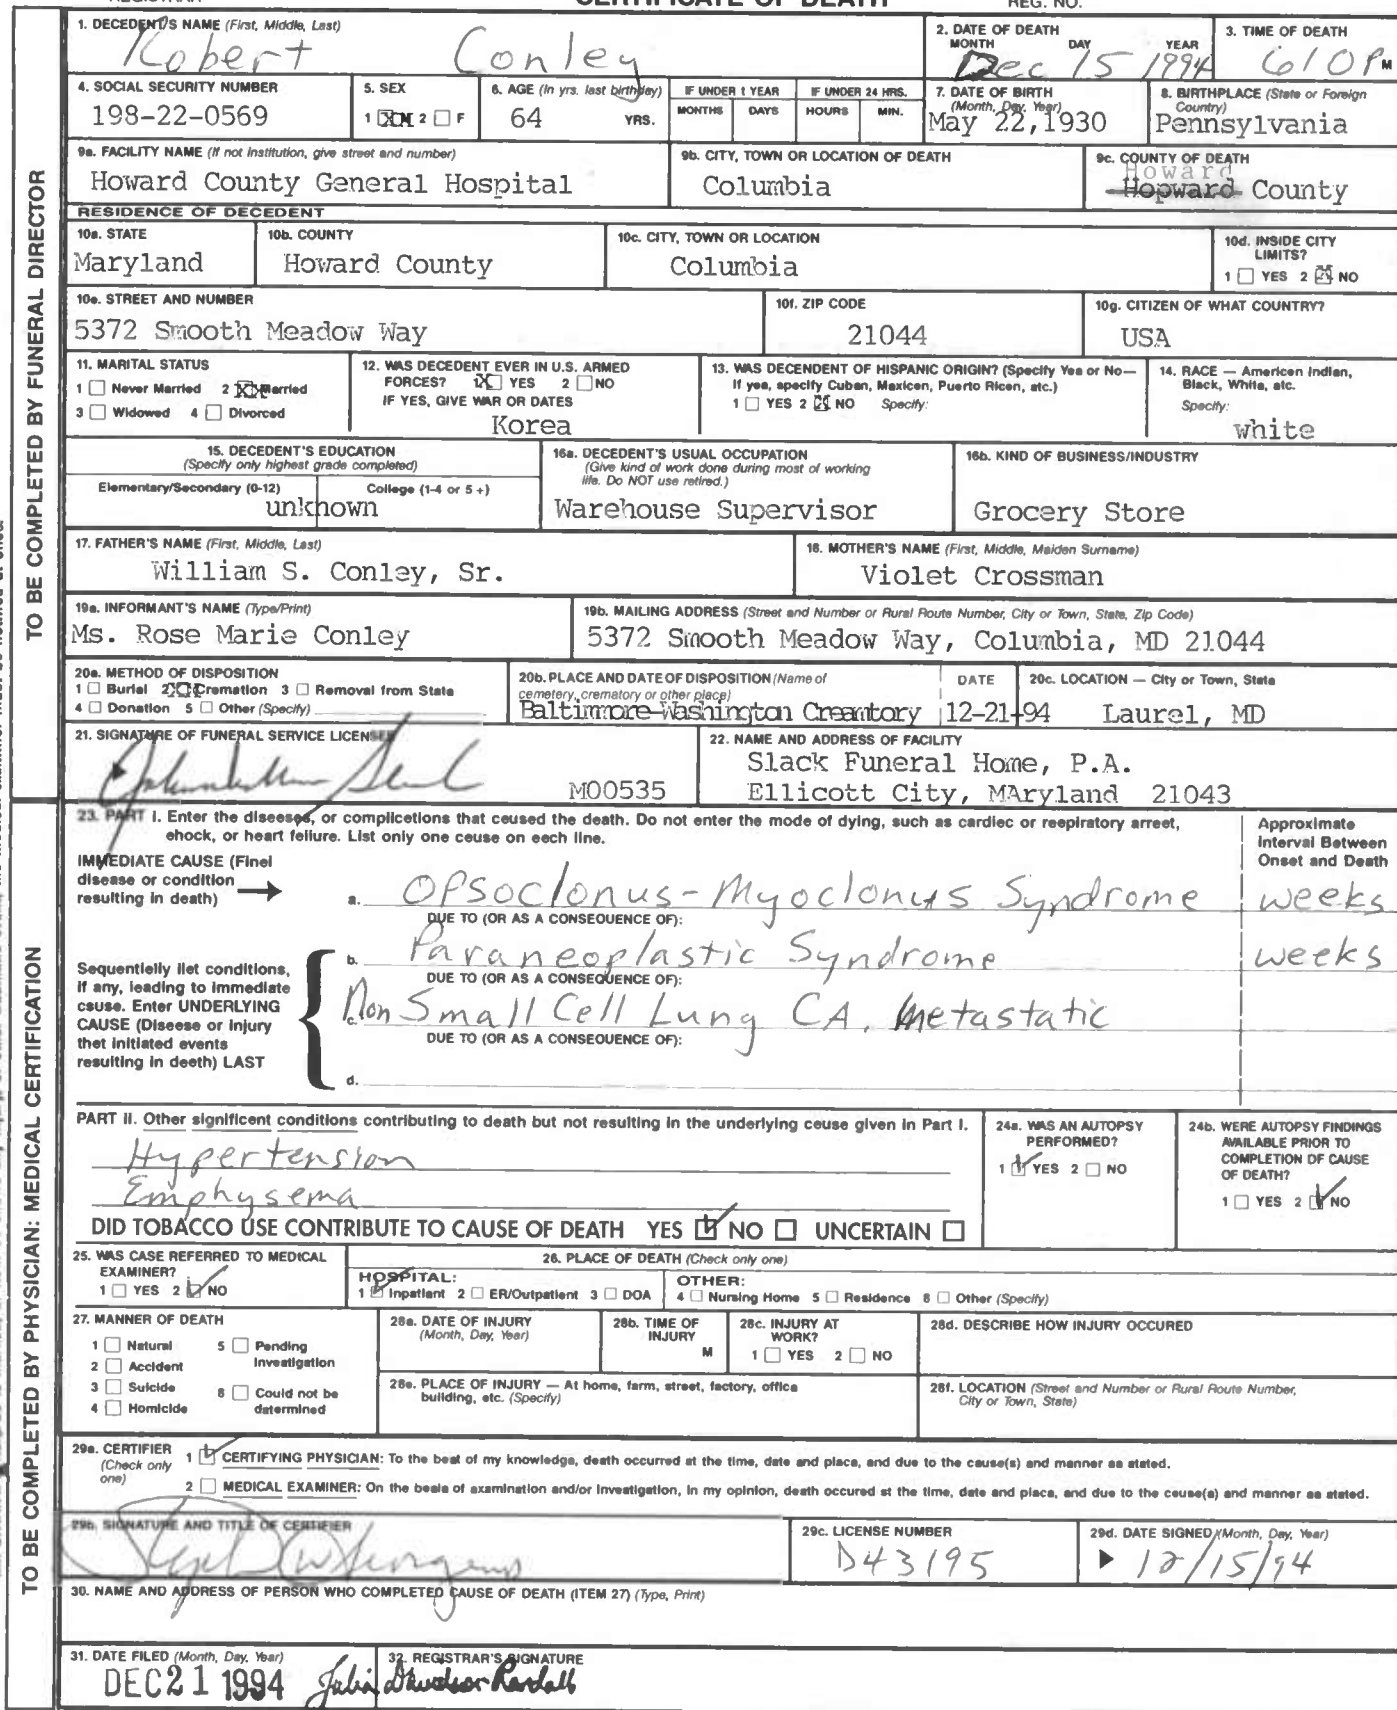 CERTIFICATE OF DEATH
REG. NO.
1. DECEDENT'S NAME (First, Middle, Last)
Robert Conley
2. DATE OF DEATH
MONTH DAY YEAR
Dec 15 1994
3. TIME OF DEATH
610 P M
4. SOCIAL SECURITY NUMBER
198-22-0569
5. SEX
1 M 2 F
6. AGE (In yrs. last birthday)
64 YRS.
IF UNDER 1 YEAR
MONTHS DAYS
IF UNDER 24 HRS.
HOURS MIN.
7. DATE OF BIRTH
(Month, Day, Year)
May 22,1930
8. BIRTHPLACE (State or Foreign
Country)
Pennsylvania
9a. FACILITY NAME (If not institution, give street and number)
Howard County General Hospital
9b. CITY, TOWN OR LOCATION OF DEATH
Columbia
9c. COUNTY OF DEATH
Howard
Hopward County
RESIDENCE OF DECEDENT
10a. STATE
Maryland
10b. COUNTY
Howard County
10c. CITY, TOWN OR LOCATION
Columbia
10d. INSIDE CITY
LIMITS?
1 YES 2 NO
10e. STREET AND NUMBER
5372 Smooth Meadow Way
10f. ZIP CODE
21044
10g. CITIZEN OF WHAT COUNTRY?
USA
11. MARITAL STATUS
1 Never Married 2 Married
3 Widowed 4 Divorced
12. WAS DECEDENT EVER IN U.S. ARMED
FORCES? 1 YES 2 NO
IF YES, GIVE WAR OR DATES
Korea
13. WAS DECENDENT OF HISPANIC ORIGIN? (Specify Yes or No—
If yes, specify Cuban, Mexican, Puerto Rican, etc.)
1 YES 2 NO Specify:
14. RACE — American Indian,
Black, White, etc.
Specify:
white
15. DECEDENT'S EDUCATION
(Specify only highest grade completed)
Elementary/Secondary (0-12) College (1-4 or 5 +)
unknown
16a. DECEDENT'S USUAL OCCUPATION
(Give kind of work done during most of working
life. Do NOT use retired.)
Warehouse Supervisor
16b. KIND OF BUSINESS/INDUSTRY
Grocery Store
17. FATHER'S NAME (First, Middle, Last)
William S. Conley, Sr.
18. MOTHER'S NAME (First, Middle, Maiden Surname)
Violet Crossman
19a. INFORMANT'S NAME (Type/Print)
Ms. Rose Marie Conley
19b. MAILING ADDRESS (Street and Number or Rural Route Number, City or Town, State, Zip Code)
5372 Smooth Meadow Way, Columbia, MD 21044
20a. METHOD OF DISPOSITION
1 Burial 2 Cremation 3 Removal from State
4 Donation 5 Other (Specify)
20b. PLACE AND DATE OF DISPOSITION (Name of
cemetery, crematory or other place)
Baltimmore-Washington Creamtory
DATE
12-21-94
20c. LOCATION — City or Town, State
Laurel, MD
21. SIGNATURE OF FUNERAL SERVICE LICENSEE
M00535
22. NAME AND ADDRESS OF FACILITY
Slack Funeral Home, P.A.
Ellicott City, MAryland 21043
TO BE COMPLETED BY FUNERAL DIRECTOR
23. PART I. Enter the diseases, or complications that caused the death. Do not enter the mode of dying, such as cardiac or respiratory arrest,
shock, or heart failure. List only one cause on each line.
Approximate
Interval Between
Onset and Death
IMMEDIATE CAUSE (Final
disease or condition
resulting in death)
a. Opsoclonus-Myoclonus Syndrome weeks
DUE TO (OR AS A CONSEQUENCE OF):
b. Paraneoplastic Syndrome weeks
DUE TO (OR AS A CONSEQUENCE OF):
Sequentially list conditions,
if any, leading to immediate
cause. Enter UNDERLYING
CAUSE (Disease or injury
that initiated events
resulting in death) LAST
c. Non Small Cell Lung CA, metastatic
DUE TO (OR AS A CONSEQUENCE OF):
d.
PART II. Other significant conditions contributing to death but not resulting in the underlying cause given in Part I.
Hypertension
Emphysema
24a. WAS AN AUTOPSY
PERFORMED?
1 YES 2 NO
24b. WERE AUTOPSY FINDINGS
AVAILABLE PRIOR TO
COMPLETION OF CAUSE
OF DEATH?
1 YES 2 NO
DID TOBACCO USE CONTRIBUTE TO CAUSE OF DEATH YES NO UNCERTAIN
25. WAS CASE REFERRED TO MEDICAL
EXAMINER?
1 YES 2 NO
26. PLACE OF DEATH (Check only one)
HOSPITAL:
1 Inpatient 2 ER/Outpatient 3 DOA
OTHER:
4 Nursing Home 5 Residence 6 Other (Specify)
27. MANNER OF DEATH
1 Natural 5 Pending
Investigation
2 Accident
3 Suicide 6 Could not be
determined
4 Homicide
28a. DATE OF INJURY
(Month, Day, Year)
28b. TIME OF
INJURY
M
28c. INJURY AT
WORK?
1 YES 2 NO
28d. DESCRIBE HOW INJURY OCCURED
28e. PLACE OF INJURY — At home, farm, street, factory, office
building, etc. (Specify)
28f. LOCATION (Street and Number or Rural Route Number,
City or Town, State)
29a. CERTIFIER
(Check only
one)
1 CERTIFYING PHYSICIAN: To the best of my knowledge, death occurred at the time, date and place, and due to the cause(s) and manner as stated.
2 MEDICAL EXAMINER: On the basis of examination and/or investigation, in my opinion, death occured at the time, date and place, and due to the cause(s) and manner as stated.
29b. SIGNATURE AND TITLE OF CERTIFIER
29c. LICENSE NUMBER
D43195
29d. DATE SIGNED (Month, Day, Year)
12/15/94
30. NAME AND ADDRESS OF PERSON WHO COMPLETED CAUSE OF DEATH (ITEM 27) (Type, Print)
31. DATE FILED (Month, Day, Year)
DEC 21 1994
32. REGISTRAR'S SIGNATURE
Julia Davidson-Randall
TO BE COMPLETED BY PHYSICIAN: MEDICAL CERTIFICATION